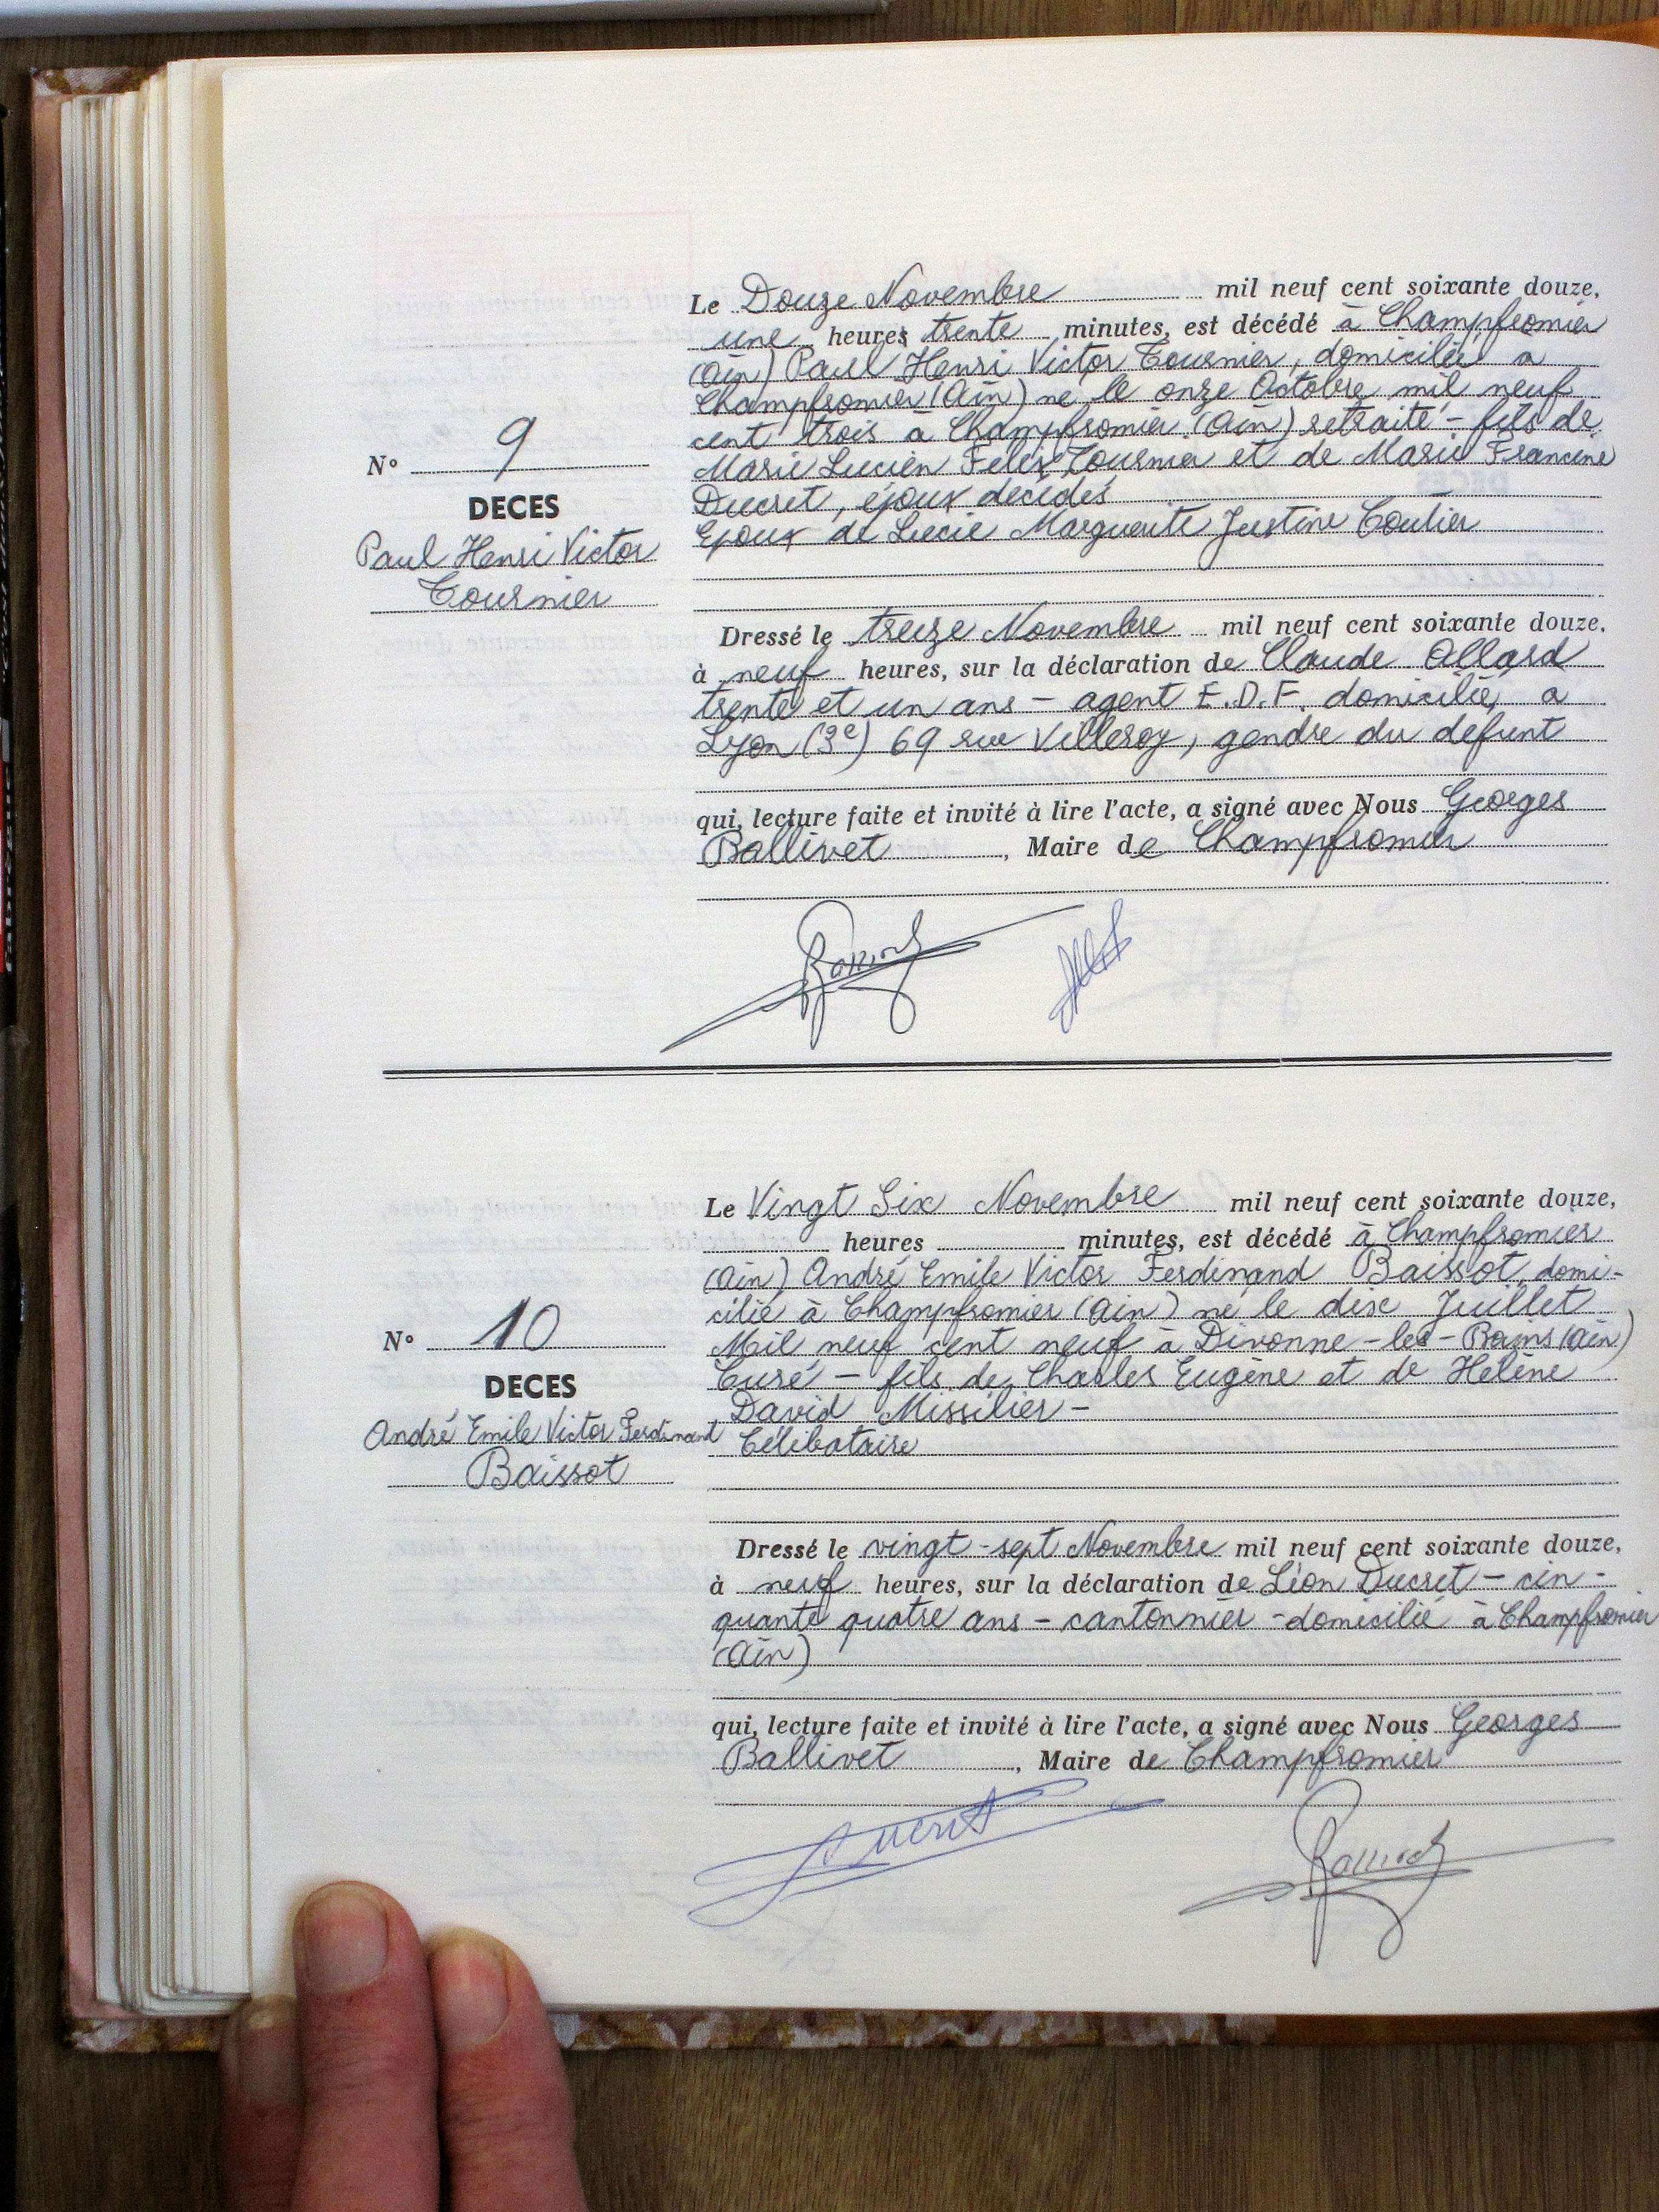 Le Douze Novembre mil neuf cent soixante douze,
une heures trente minutes, est décédé à Champfromier
(Ain) Paul Henri Victor Tournier, domicilié à
Champfromier (Ain) né le onze Octobre mil neuf
cent trois à Champfromier (Ain) retraité - fils de
Marie Lucien Félix Tournier et de Marie Francine
Ducret, époux décédés
Epoux de Lucie Marguerite Justine Coutier
N° 9
DECES
Paul Henri Victor
Tournier
Dressé le treize Novembre mil neuf cent soixante douze,
à neuf heures, sur la déclaration de Claude Allard
trente et un ans - agent E.D.F. domicilié, à
Lyon (3e) 69 rue Villeroy, gendre du défunt
qui, lecture faite et invité à lire l'acte, a signé avec Nous Georges
Ballivet, Maire de Champfromier
Le Vingt Six Novembre mil neuf cent soixante douze,
heures minutes, est décédé à Champfromier
(Ain) André Emile Victor Ferdinand Baissot, domi-
cilié à Champfromier (Ain) né le dix Juillet
Mil neuf cent neuf à Divonne-les-Bains (Ain)
Curé - fils de Charles Eugène et de Hélène
David Missilier -
Célibataire
N° 10
DECES
André Emile Victor Ferdinand
Baissot
Dressé le vingt-sept Novembre mil neuf cent soixante douze,
à neuf heures, sur la déclaration de Léon Ducret - cin-
quante quatre ans - cantonnier - domicilié à Champfromier
(Ain)
qui, lecture faite et invité à lire l'acte, a signé avec Nous Georges
Ballivet, Maire de Champfromier